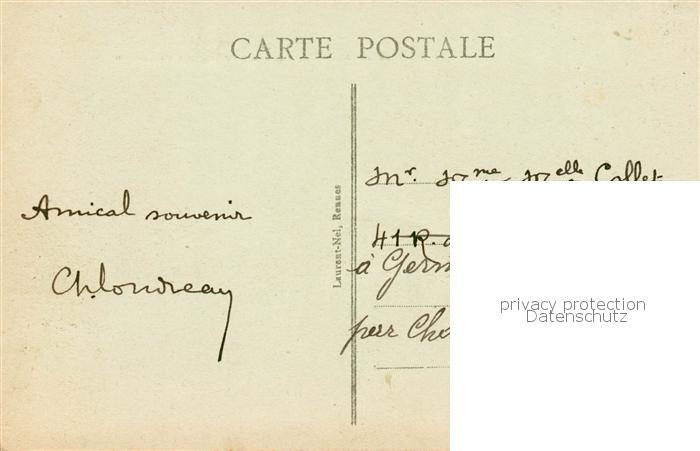 CARTE POSTALE
Amical souvenir
Ch. Londreau
Laurent-Nel, Rennes
Mr. Mme Melle Collet
41 R.
à Germ
par Cho
privacy protection
Datenschutz